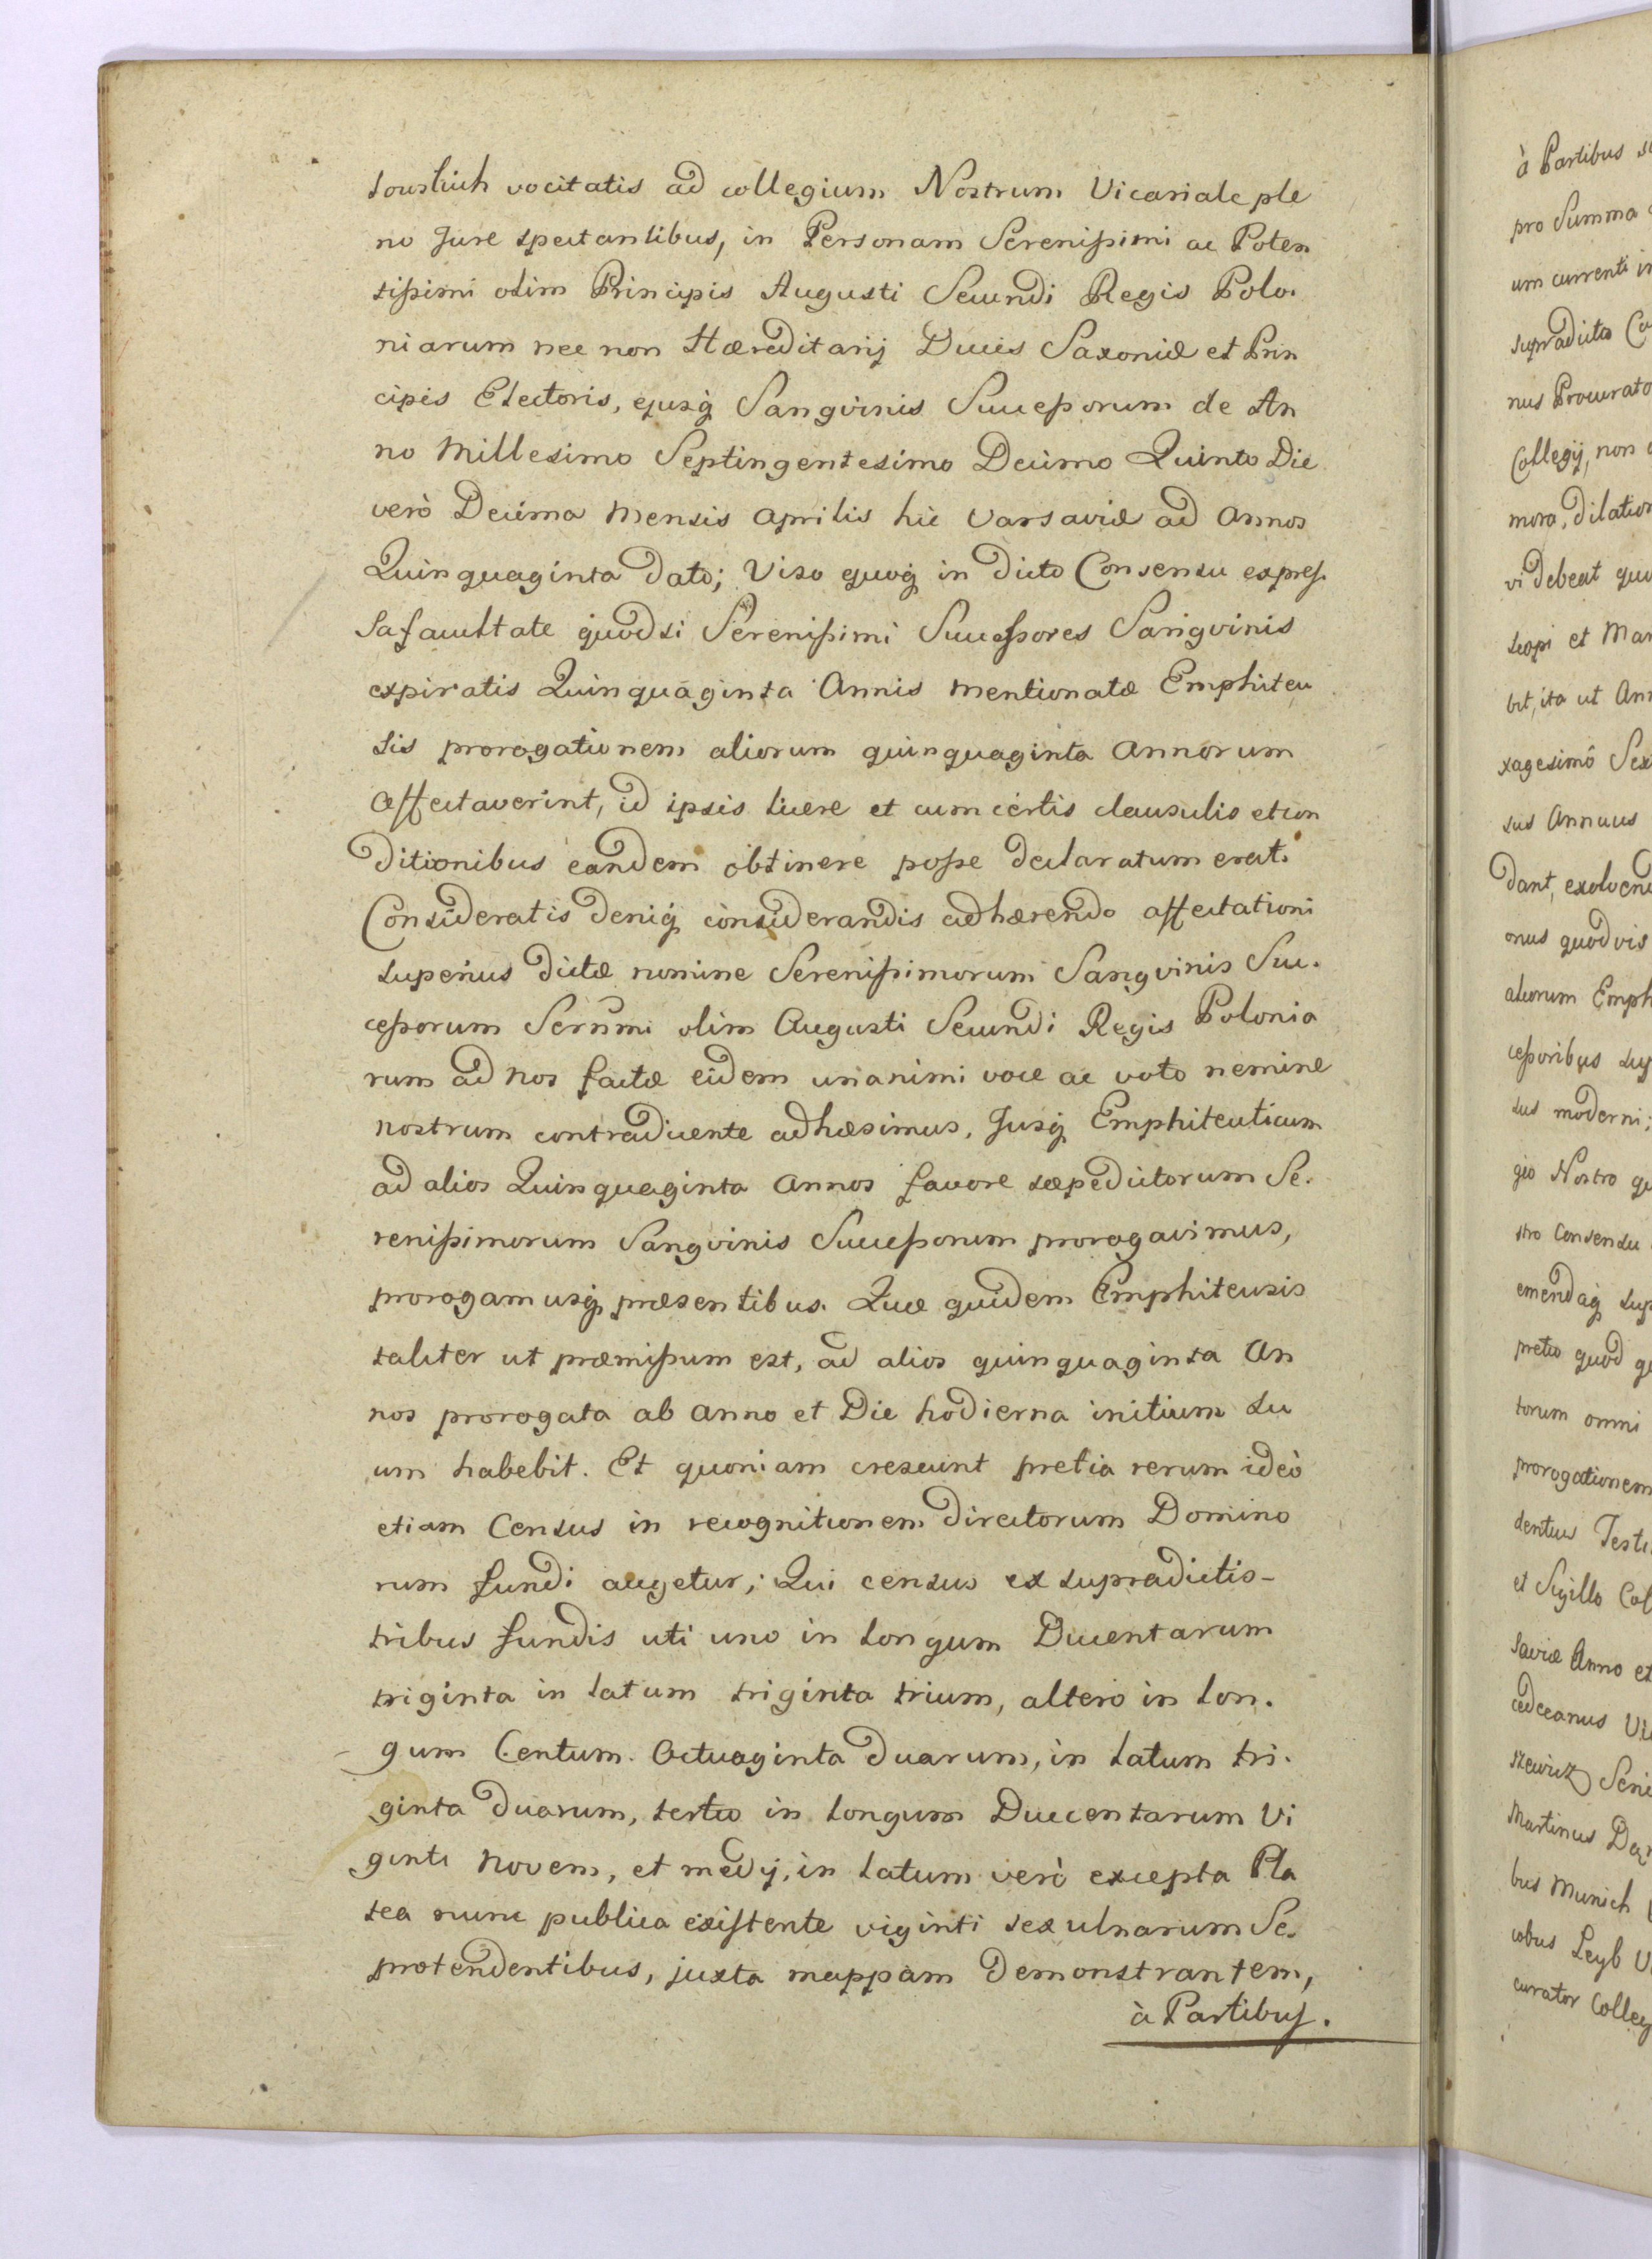 towskich vocitatis ad collegium Nostrum Vicariale ple
no Jure spectantibus, in Personam Serenissimi ac Poten
tissimi olim Principis Augusti Secundi Regis Polo.
niarum nec non Hæreditarij Ducis Saxoniæ et Prin
cipis Electoris, ejusq́ Sangvinis Successorum de An
no Millesimo Septingentesimo Decimo Quinto Die
verò Decima Mensis Aprilis hic Varsaviæ ad Annos
Quinquaginta dato; Viso quoq́ in dicto Consensu expres.
sa facultate quodsi Serenissimi Successores Sangvinis
expiratis Quinquaginta Annis mentionatæ Emphiteu
sis prorogationem aliorum quinquaginta Annorum
affectaverint, id ipsis licere et cum certis clausulis et con
ditionibus eandem obtinere posse declaratum erat.
Consideratis deniq́ considerandis adhærendo affectationi
superius dictæ nomine Serenissimorum Sangvinis Suc.
cessorum Serñmi olim Augusti Secundi Regis Polonia
rum ad nos factæ eidem unanimi voce ac voto nemine
nostrum contradicente adhæsimus, Jusq́ Emphiteuticum
ad alios Quinquaginta Annos favore sæpedictorum Se.
renissimorum Sangvinis Successorum prorogavimus,
prorogamusq́ præsentibus. Quæ quidem Emphiteusis
taliter ut præmissum est, ad alios quinquaginta An
nos prorogata ab Anno et Die hodierna initium su
um habebit. Et quoniam crescunt pretia rerum ideò
etiam Census in recognitionem directorum Domino
rum fundi augetur; Qui census ex supradictis-
tribus fundis uti uno in longum Ducentarum
triginta in latum triginta trium, altero in lon.
gum Centum. Octuaginta duarum, in latum tri.
ginta duarum, tertio in longum Ducentarum Vi
ginti Novem, et medij, in latum verò excepta Pla
tea nunc publica existente viginti sex ulnarum Se.
protendentibus, juxta mappam demonstrantem,
à Partibus.
à Partibus
pro Summa
um currenti in
supradicto
nus Procurato
Collegij, non
mora, dilation
vi debeat
et Mar
bit, ita ut Ann
xagesimô Sex
sus Annuus
dant,
onus quodvis
aliorum Emph
cessoribus sup
sus moderni;
gio Nostro
stro Consensu
emendaq́ sup
pretio quod
torum omni
prorogationem
dentius Testi
et Sigillo Col
saviæ Anno et

Seni
Martinus
bus Munich
cobus Leyb
curator Colleg